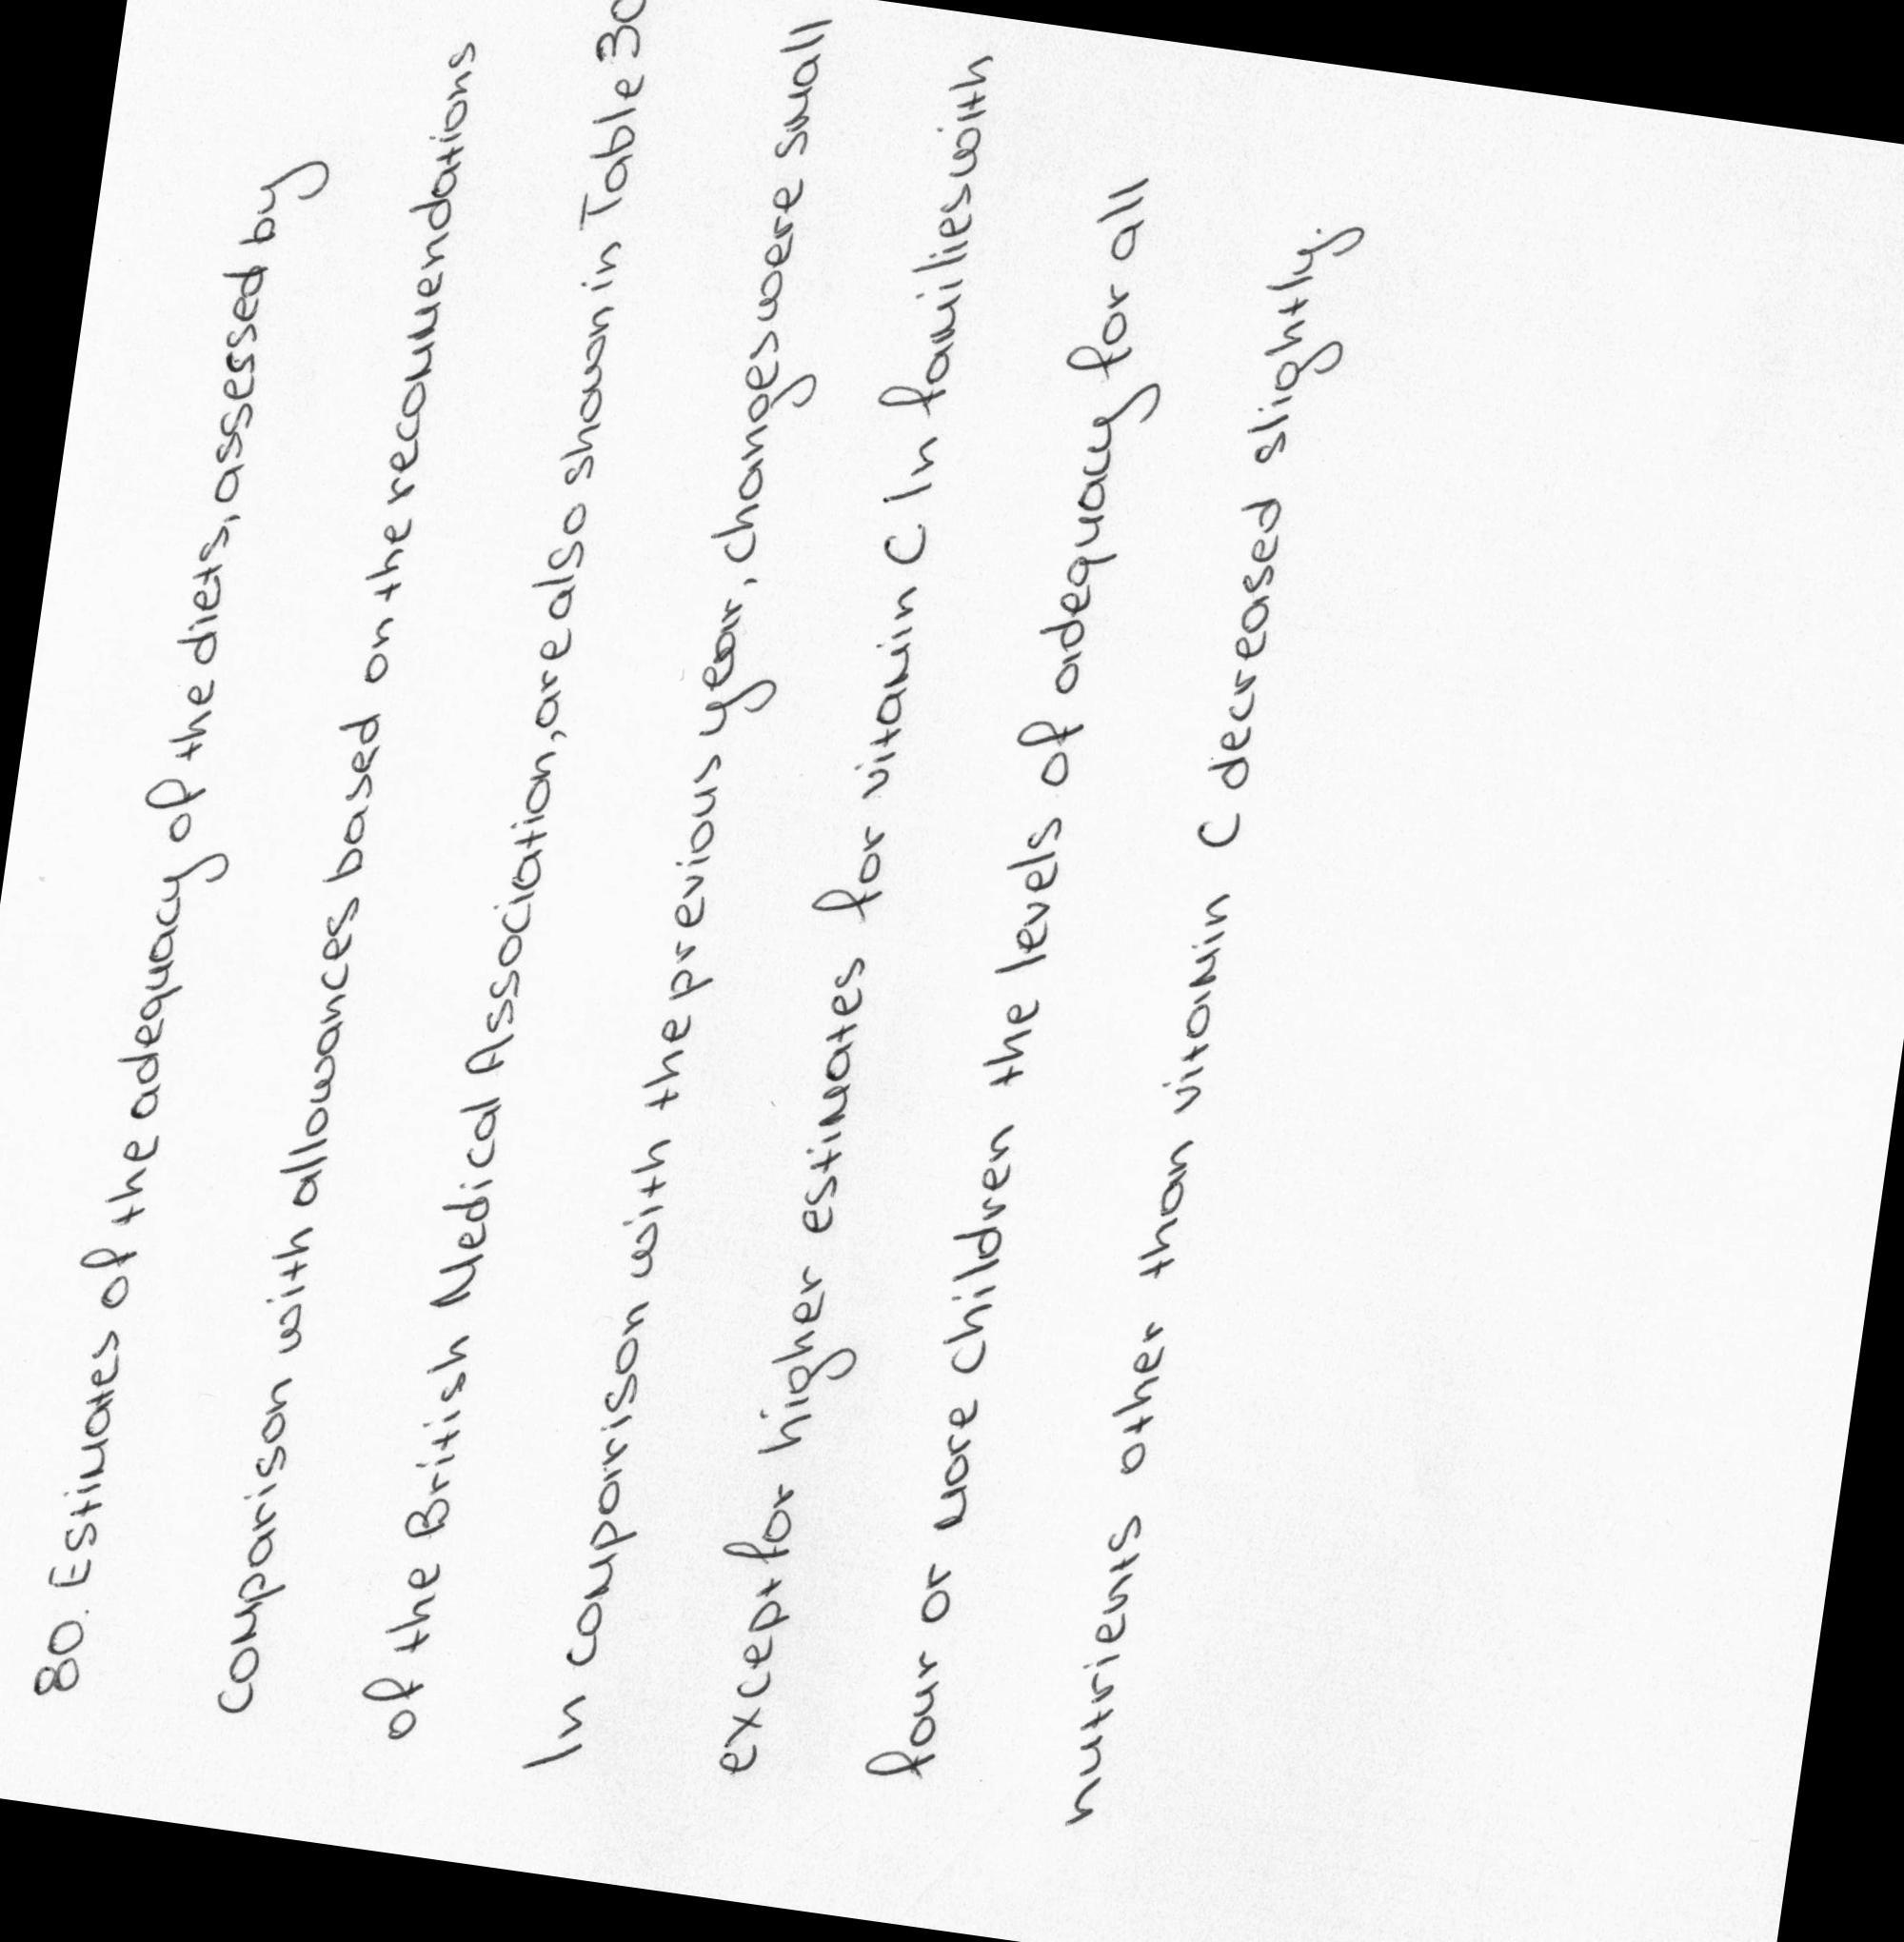 80. Estimates of the adequacy of the diets, assessed by
comparison with allowances based on the recommendations
of the British Medical Association, are also shown in Table 30
In comparison with the previous year, changes were small
except for higher estimates for vitamin C In families with
four or more children the levels of adequacy for all
nutrients other than vitamin C decreased slightly.